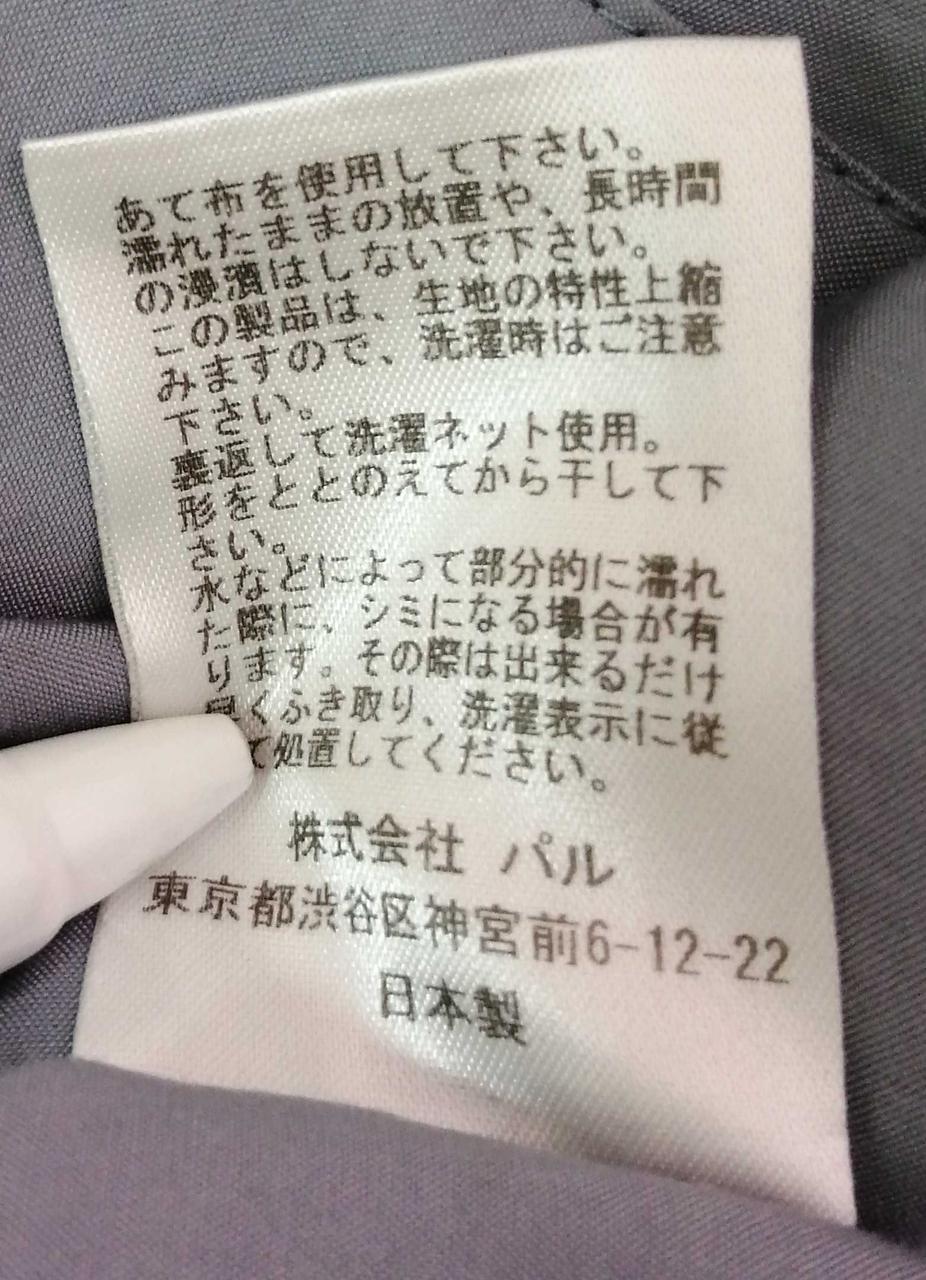 あて布を使用して下さい。
濡れたままの放置や、長時間
の浸漬はしないで下さい。
この製品は、生地の特性上縮
みますので、洗濯時はご注意
下さい。
裏返して洗濯ネット使用。
形をととのえてから干して下
さい。
水などによって部分的に濡れ
た際に、シミになる場合が有
ります。その際は出来るだけ
早くふき取り、洗濯表示に従
て処置してください。
株式会社 パル
東京都渋谷区神宮前6-12-22
日本製